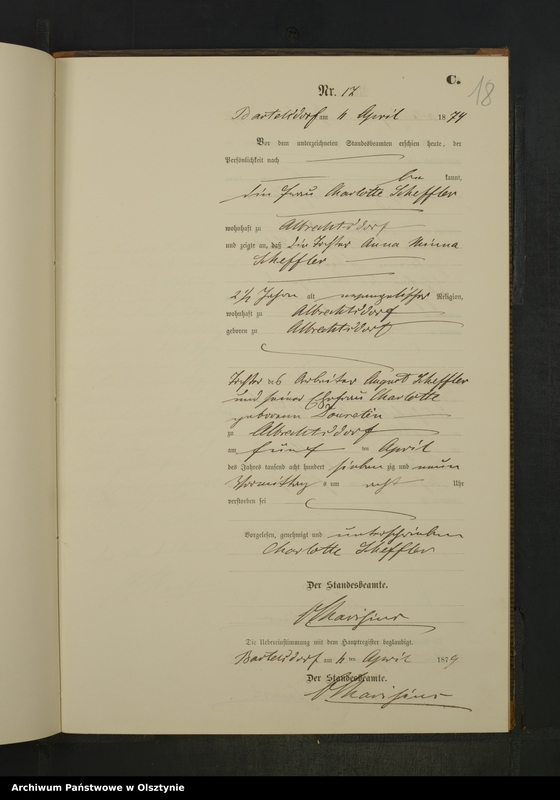 C.
18
Nr. 17
Bartelsdorf am April 1879
Vor dem unterzeichneten Standesbeamten erschien heute, der
Persönlichkeit nach
be kannt,
die Frau Charlotte Scheffler
wohnhaft zu Albrechtsdorf
und zeigte an, daß die Tochter Anna Minna
Scheffler
2½ Jahre alt evangelischer Religion,
wohnhaft zu Albrechtsdorf
geboren zu Albrechtsdorf
Tochter des Arbeiter August Scheffler
und seiner Ehefrau Charlotte
geborenen
zu Albrechtsdorf
am fünf ten April
des Jahres tausend acht hundert sieben zig und neun
Vormittag s um acht Uhr
verstorben sei
Vorgelesen, genehmigt und unterschrieben
Charlotte Scheffler
Der Standesbeamte.
Die Uebereinstimmung mit dem Hauptregister beglaubigt.
Bartelsdorf am ten April 1879
Der Standesbeamte.
Archiwum Państwowe w Olsztynie